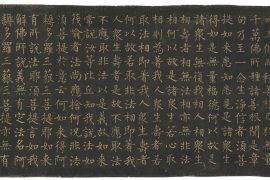 千萬佛所種諸善根聞是章
句乃至一念生淨信者須菩
提如來悉知悉見是諸眾生
得如是無量福德何以故是
諸眾生無復我相人相眾生
相壽者相無法相亦無非法
相何以故是諸眾生若心取
相則為著我人眾生壽者若
取法相即著我人眾生壽者
何以故若取非法相即著我
人眾生壽者是故不應取法
不應取非法以是義故如來
常說汝等比丘知我說法如
筏喻者法尚應捨何況非法
須菩提於意云何如來得阿
耨多羅三藐三菩提耶如來
有所說法耶須菩提言如我
解佛所說義無有定法名阿
耨多羅三藐三菩提亦無有